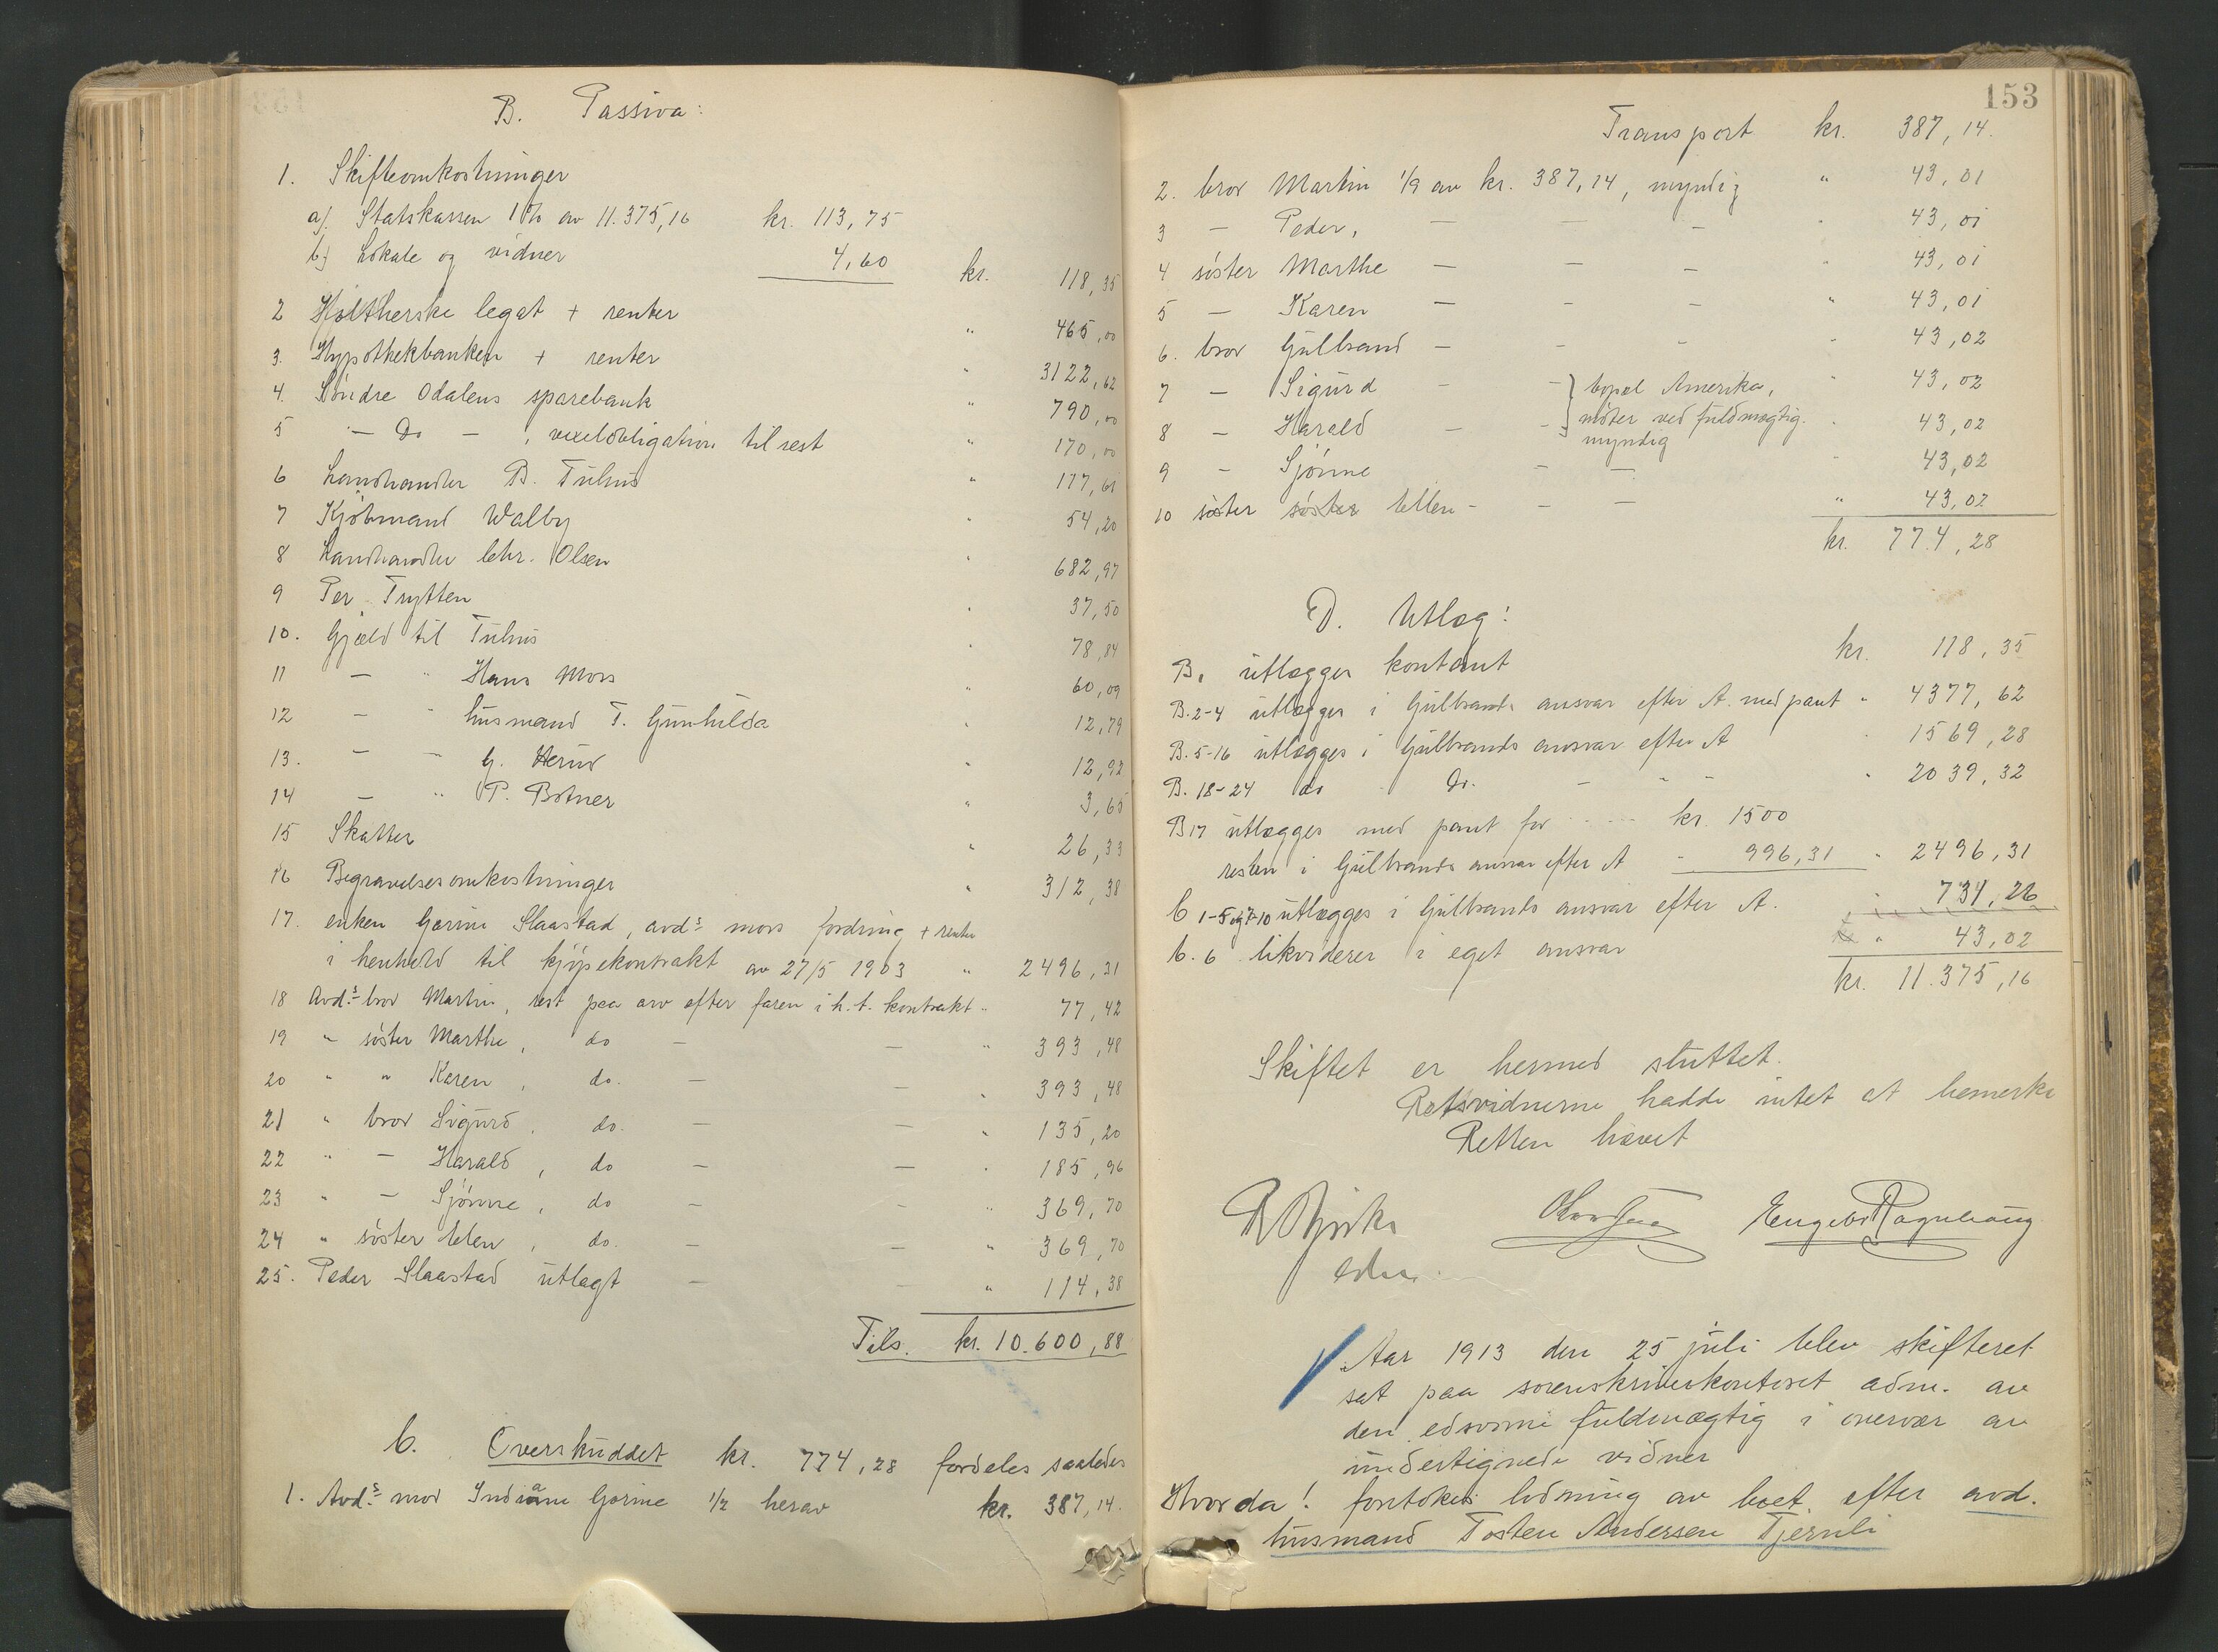 B. Passiva:
1. Skifteomkostninger
a). Statskassen 1% av 11.375,16 kr. 113,75
b) Lokale og vidner 4,60 kr. 118,35
2 Holtherske legat + renter " 465,00
3. Hypothekbanken + renter " 3122,62
4. Söndre Odalens sparebank " 790,00
5 — Do — , vexelobligation til rest " 170,00
6 Landhandler B. Tuhus " 177,61
7 Kjöbmand Walby " 54,20
8 Landhandler Chr. Olsen " 682,97
9 Per Trytten " 37,50
10. Gjæld til Tuhus " 78,84
11 — " Hans Mors " 60,09
12 — " husmand T. Gunhilda " 12,79
13. — " G. Herud " 12,92
14 — " P. Botner " 3,65
15 Skatter " 26,33
16 Begravelsesomkostninger " 312,38
17. enken Gorine Slaastad, avds mors fordring + renter
i henhold til kjöpekontrakt av 27/5 1903 " 2496,31
18 Avds bror Martin, rest paa arv efter faren i h. t. kontrakt " 77,42
19 " söster Marthe, do — — " 393,48
20 " " Karen, do. — — " 393,48
21 " bror Sigurd, do. — — " 135,20
22 " — Harald, do — — " 185,96
23 " — Sjönne, do — " 369,70
24 " söster Ellen, do. — — " 369,70
25. Peder Slaastad utlagt — — " 114,38
Tils. kr. 10.600,88
C. Overskuddet kr. 774,28 fordeles saaledes
1. Avds mor Indiane Gorine 1/2 herav kr. 387,14.
153
Transport kr. 387,14.
2. bror Martin 1/9 av kr. 387,14, myndig " 43,01
3 — Peder, — — — " 43,01
4 söster Marthe — — — " 43,01
5 — Karen — — — " 43,01
6. bror Gulbrand — - - " 43,02
7 — Sigurd - - } bopæl Amerika, " 43,02
8 — Harald - - möter ved fuldmægtig. " 43,02
myndig
9 - Sjönne — — " 43,02
10 söster söster Ellen - — — " 43,02
kr. 774,28
D. Utlæg:
B. 1 utlægges kontant kr. 118,35
B. 2-4 utlægges i Gulbrands ansvar efter A. med pant " 4377,62
B. 5-16 utlægges i Gulbrands ansvar efter A " 1569,28
B. 18-24 do Do. - - - " 2039,32
B 17 utlægges med pant for kr. 1500
resten i Gulbrands ansvar efter A " 996,31 " 2496,31
C 1-5 og 7-10 utlægges i Gulbrands ansvar efter A. 734,26
C. 6 likviderer i eget ansvar " 43,02
kr. 11.375,16
Skiftet er hermed sluttet.
Retsvidnerne hadde intet at bemerke
Retten hævet
Engebr Ragnhaug
Aar 1913 den 25 juli blev skifteret
sat paa sorenskriverkontoret adm. av
den edsvorne fuldmægtig i overvær av
undertegnede vidner
Hvorda! foretokes lodning av boet efter avd.
husmand Tosten Andersen Tjernli